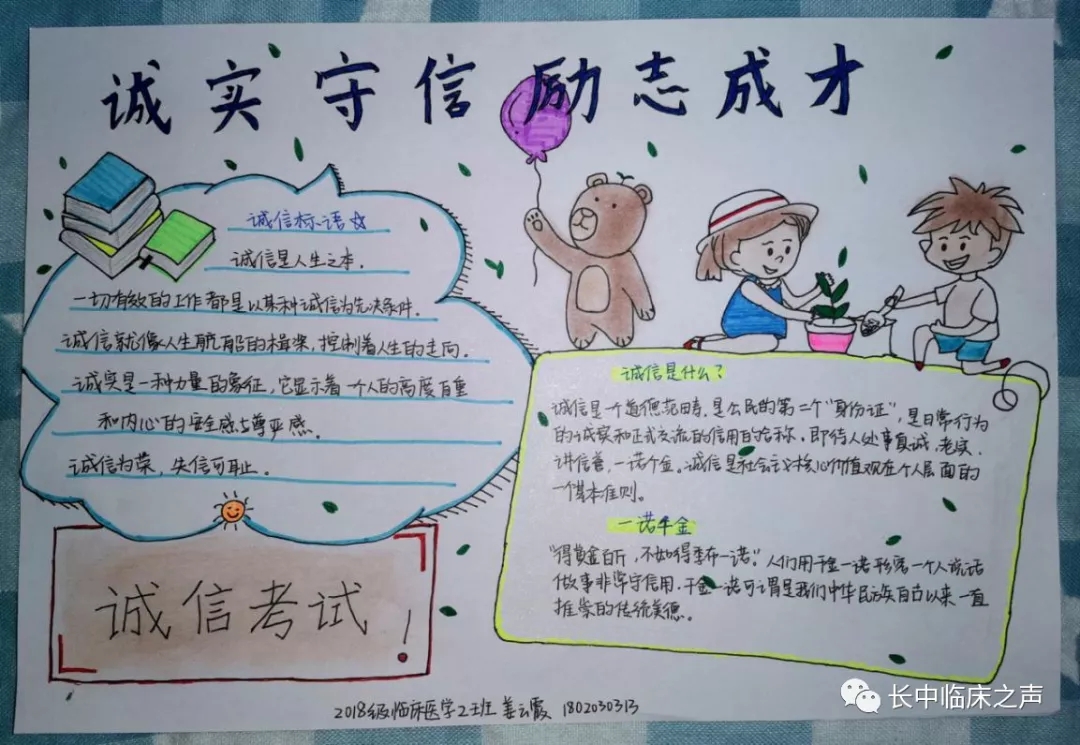 诚实守信励志成才
诚信标语☆
诚信是人生之本.
一切有效的工作都是以某种诚信为先决条件.
诚信就像人生航船的楫桨,控制着人生的走向.
诚实是一种力量的象征,它显示着一个人的高度自重
和内心的安全感与尊严感.
诚信为荣,失信可耻.
诚信考试!
诚信是什么?
诚信是一个道德范畴,是公民的第二个“身份证”,是日常行为
的诚实和正式交流的信用的合称.即待人处事真诚、老实、
讲信誉,一诺千金。诚信是社会主义核心价值观在个人层面的
一个基本准则。
一诺千金
“得黄金百斤,不如得季布一诺”.人们用千金一诺形容一个人说话
做事非常守信用.千金一诺可谓是我们中华民族自古以来一直
推崇的传统美德。
2018级临床医学2班 姜云霞 1802030313
长中临床之声